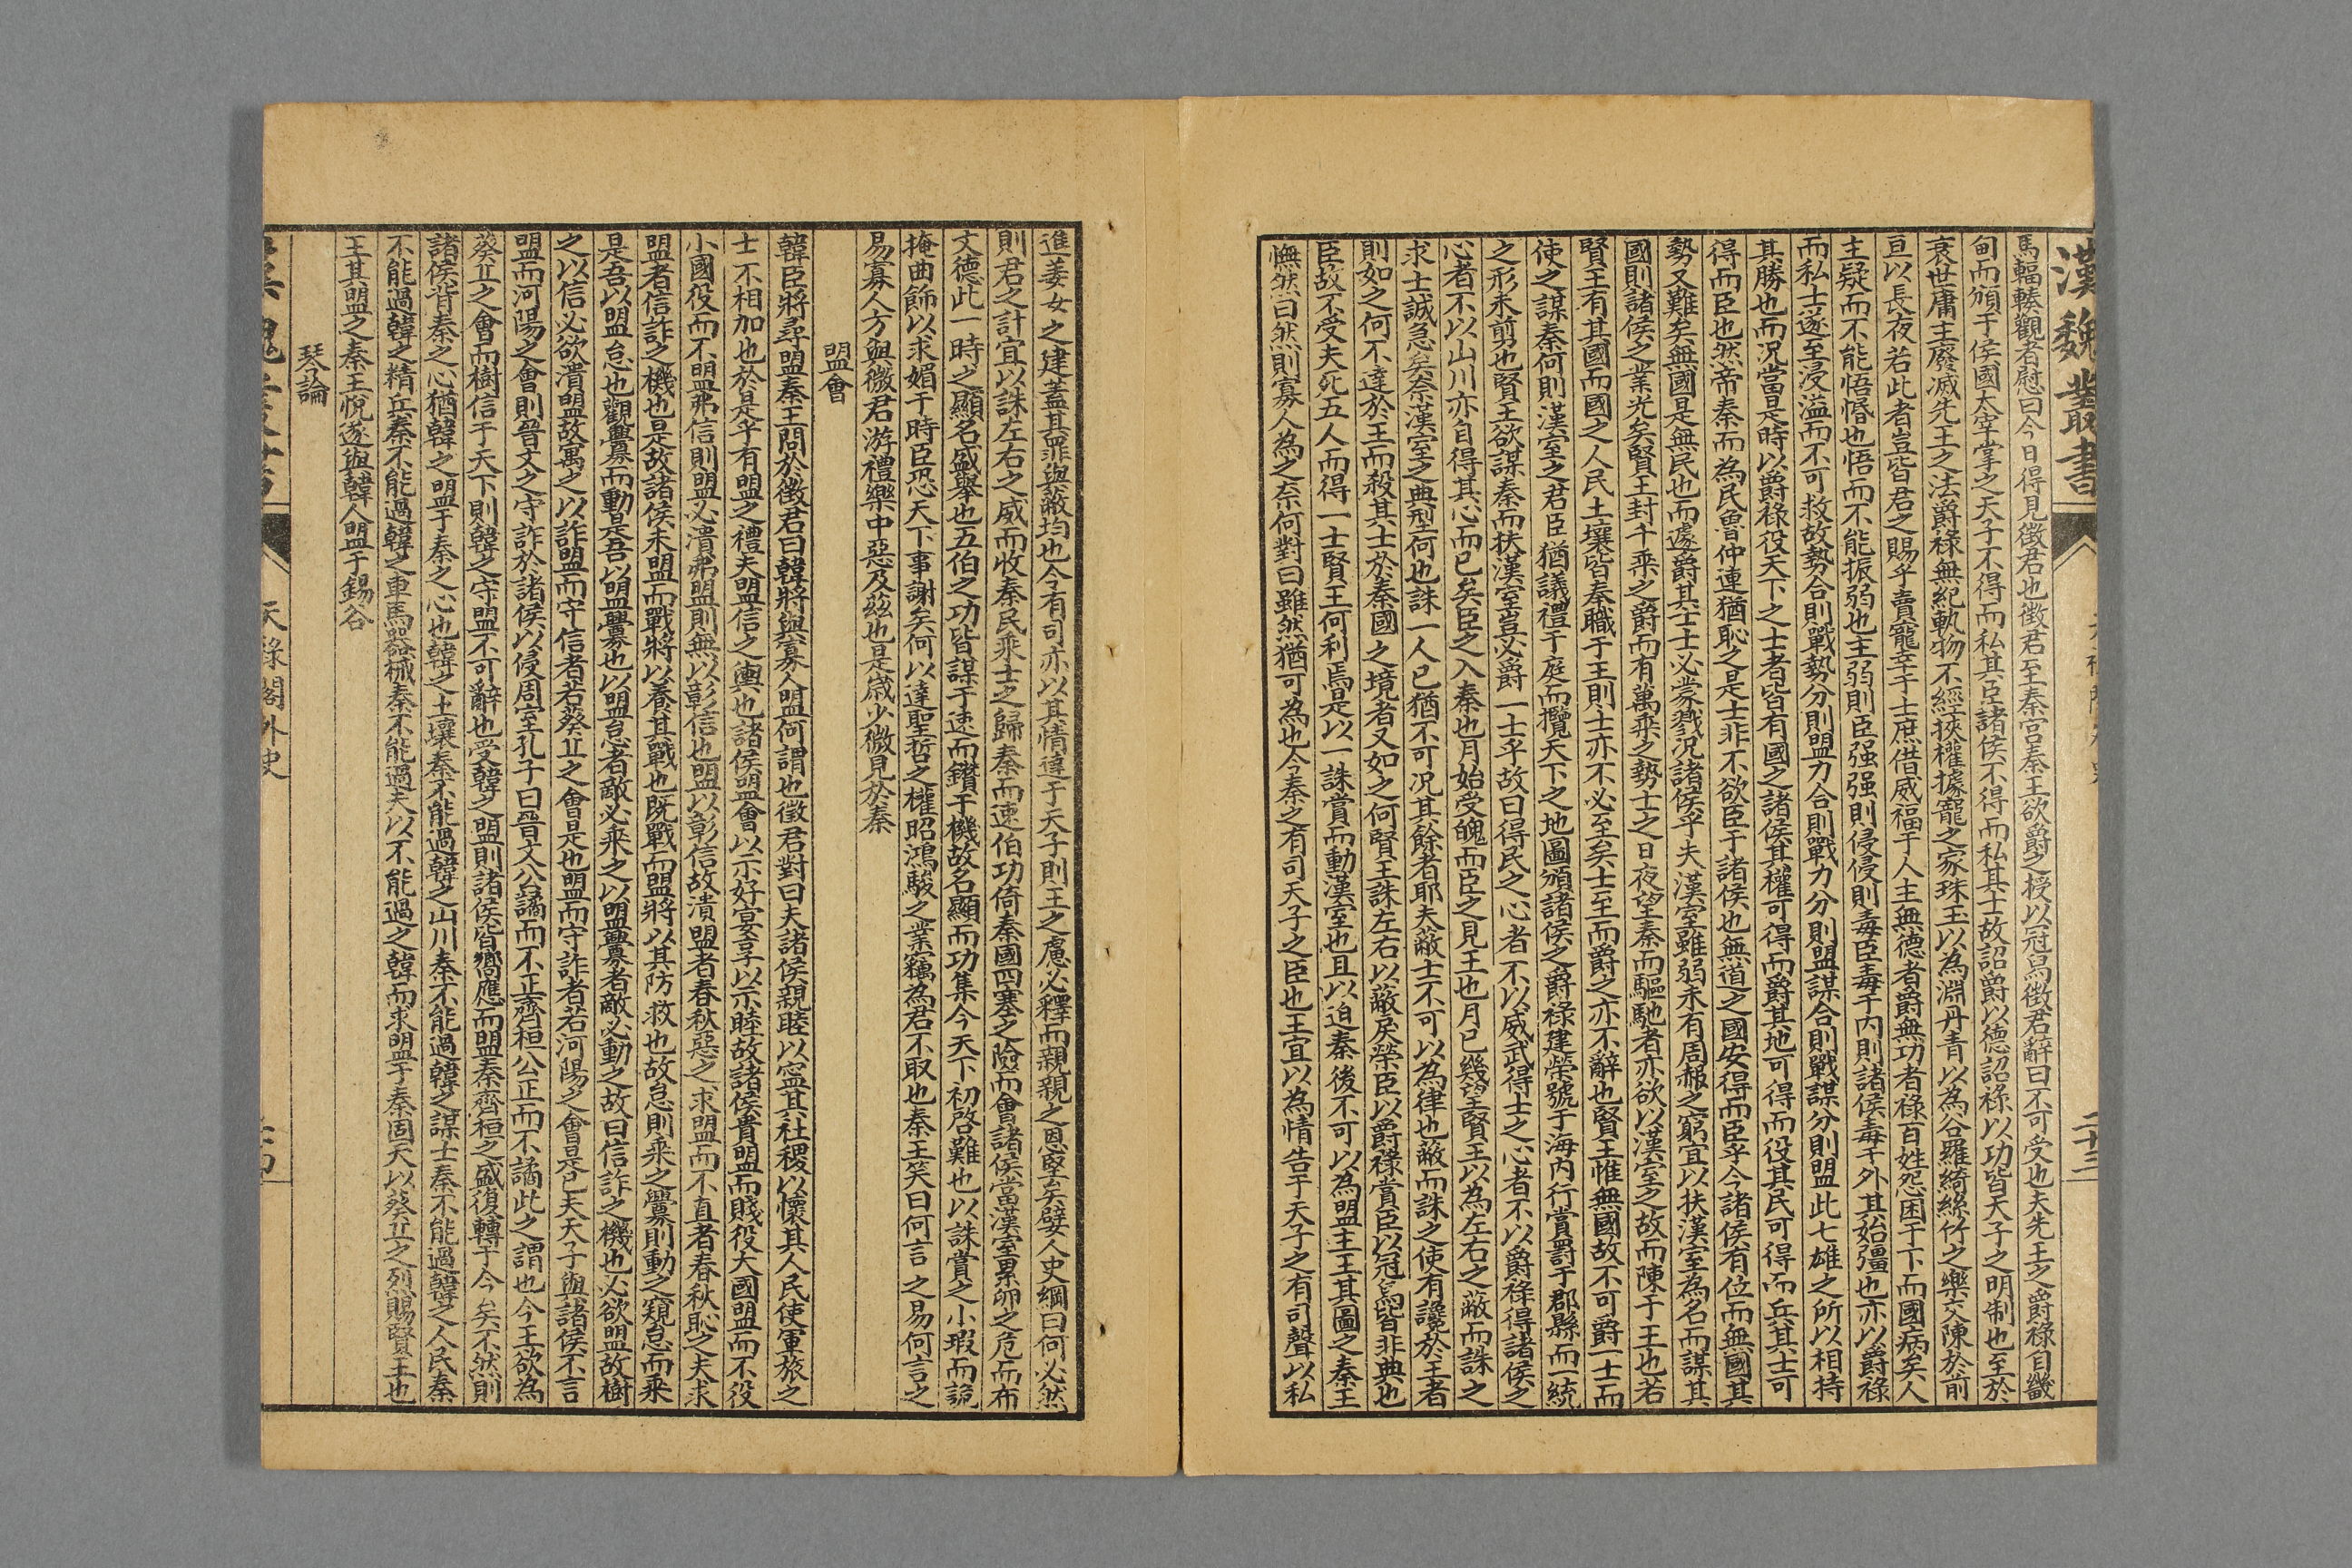 漢魏叢書
二十三
馬輻輳觀者慰曰今日得見徵君也徵君至秦宮秦王欲爵之授以冠舄徵君辭曰不可受也夫先王之爵祿自畿
甸而頒于侯國太宰掌之天子不得而私其臣諸侯不得而私其士故詔爵以德詔祿以功皆天子之明制也至於
衰世庸主廢滅先王之法爵祿無紀軌物不經挾權據寵之家珠玉以為淵丹青以為谷羅綺絲竹之樂交陳於前
亘以長夜若此者豈皆君之賜乎賣寵幸于士庶借威福于人主無德者爵無功者祿百姓怨困于下而國病矣人
主疑而不能悟惛也悟而不能振弱也主弱則臣强强則侵侵則毒臣毒于內則諸侯毒于外其始彊也亦以爵祿
而私士遂至浸溢而不可救故勢合則戰勢分則盟力合則戰力分則盟謀合則戰謀分則盟此七雄之所以相持
其勝也而况當是時以爵祿役天下之士者皆有國之諸侯其權可得而爵其地可得而役其民可得而兵其士可
得而臣也然帝秦而為民魯仲連猶恥之是士非不欲臣于諸侯也無道之國安得而臣乎今諸侯有位而無國其
勢又難矣無國是無民也而遽爵其士士必蒙戮况諸侯乎夫漢室雖弱未有周赧之窮宜以扶漢室為名而謀其
國則諸侯之業光矣賢王封千乘之爵而有萬乘之勢士之日夜望秦而驅馳者亦欲以漢室之故而陳于王也若
賢王有其國而國之人民土壤皆奉職于王則士亦不必至矣士至而爵之亦不辭也賢王惟無國故不可爵一士而
使之謀秦何則漢室之君臣猶議禮于庭而攬天下之地圖頒諸侯之爵祿建榮號于海內行賞罰于郡縣而一統
之形未剪也賢王欲謀秦而扶漢室豈必爵一士乎故曰得民之心者不以威武得士之心者不以爵祿得諸侯之
心者不以山川亦自得其心而已矣臣之入秦也月始受魄而臣之見王也月已幾望賢王以為左右之蔽而誅之
求士誠急矣奈漢室之典型何也誅一人已猶不可况其餘者耶夫蔽士不可以為律也蔽而誅之使有讒於王者
則如之何不達於王而殺其士於秦國之境者又如之何賢王誅左右以蔽戾榮臣以爵祿賞臣以冠舄皆非典也
臣故不受夫死五人而得一士賢王何利焉是以一誅賞而動漢室也且以迫秦後不可以為盟主王其圖之秦王
憮然曰然則寡人為之奈何對曰雖然猶可為也今秦之有司天子之臣也王宜以為情告于天子之有司聲以私
進姜女之建蓋其罪與蔽均也今有司亦以其情達于天子則王之慮必釋而親親之恩堅矣嬖人史綱曰何必然
則君之計宜以誅左右之威而收秦民乘士之歸秦而速伯功倚秦國四塞之險而會諸侯當漢室累卵之危而布
文德此一時之顯名盛舉也五伯之功皆謀于速而鑽于機故名顯而功集今天下初啓難也以誅賞之小瑕而詭
掩曲飾以求媚于時臣恐天下事謝矣何以達聖哲之權昭鴻駿之業竊為君不取也秦王笑曰何言之易何言之
易寡人方與徵君游禮樂中惡及茲也是歲少微見於秦
盟會
韓臣將尋盟秦王問於徵君曰韓將與寡人盟何謂也徵君對曰夫諸侯親睦以寍其社稷以懷其人民使軍旅之
士不相加也於是乎有盟之禮夫盟信之輿也諸侯盟會以示好宴享以示睦故諸侯貴盟而賤役大國盟而不役
小國役而不盟弗信則盟必潰弗盟則無以彰信也盟以彰信故潰盟者春秋惡之求盟而不直者春秋恥之夫求
盟者信詐之機也是故諸侯未盟而戰將以養其戰也既戰而盟將以其防救也故怠則乘之釁則動之窺怠而乘
是吾以盟怠也觀釁而動是吾以盟釁也以盟怠者敵必乘之以盟釁者敵必動之故曰信詐之機也必欲盟故樹
之以信必欲潰盟故寓之以詐盟而守信者若葵丘之會是也盟而守詐者若河陽之會是已夫天子與諸侯不言
盟而河陽之會則晉文之守詐於諸侯以侵周室孔子曰晉文公譎而不正齊桓公正而不譎此之謂也今王欲為
葵丘之會而樹信于天下則韓之守盟不可辭也受韓之盟則諸侯皆嚮應而盟秦齊桓之盛復轉于今矣不然則
諸侯背秦之心猶韓之盟于秦之心也韓之土壤秦不能過韓之山川秦不能過韓之謀士秦不能過韓之人民秦
不能過韓之精兵秦不能過韓之車馬器械秦不能過夫以不能過之韓而求盟于秦固天以葵丘之烈賜賢王也
王其盟之秦王悅遂與韓人盟于錫谷
琴論
天祿閣外史